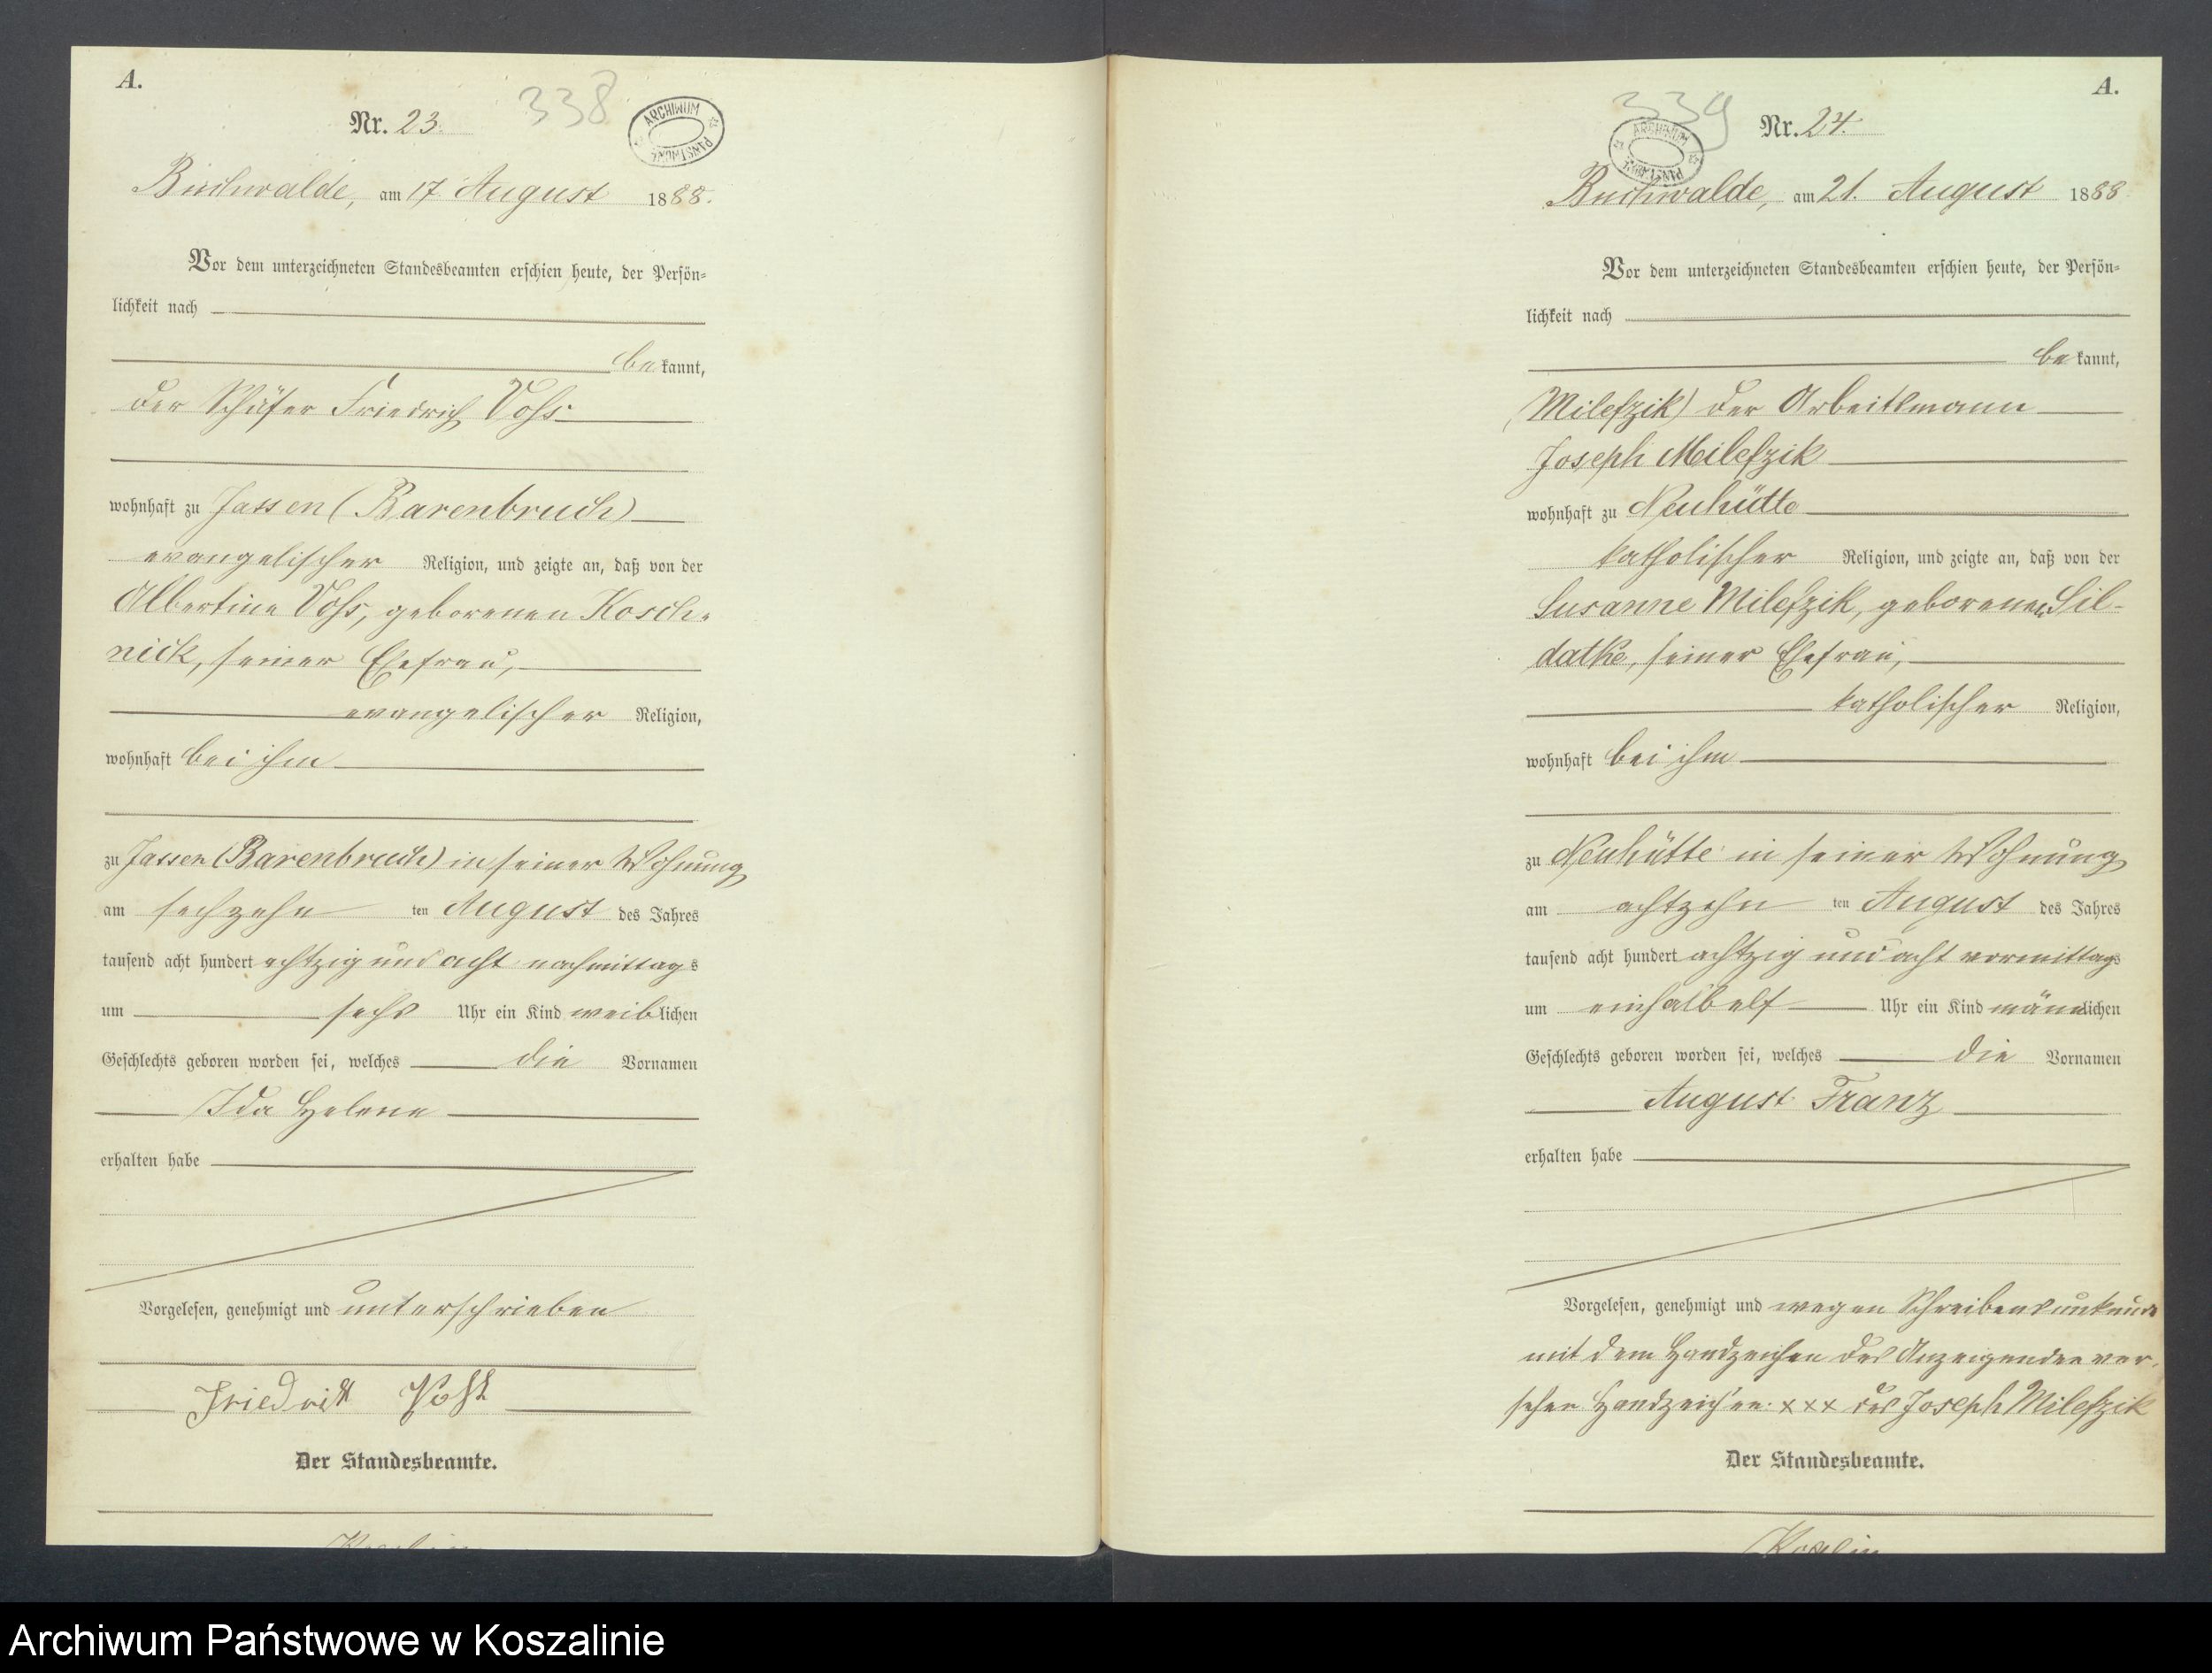 A.
Nr. 23.
338
ARCHIWUM PAŃSTWOWE
Buchwalde, am 17 August 1888.
Vor dem unterzeichneten Standesbeamten erschien heute, der Persön=
lichkeit nach
bekannt,
der Schäfer Friedrich Vohs
wohnhaft zu Jassen (Barenbruch)
evangelischer Religion, und zeigte an, daß von der
Albertine Vohs, geborenen Kosch-
nick, seiner Ehefrau,
evangelischer Religion,
wohnhaft bei ihm
zu Jassen (Barenbruch) in seiner Wohnung
am sechzehn ten August des Jahres
tausend acht hundert achtzig und acht nachmittags
um sechs Uhr ein Kind weiblichen
Geschlechts geboren worden sei, welches die Vornamen
Ida Helene
erhalten habe
Vorgelesen, genehmigt und unterschrieben
Friedrich
Der Standesbeamte.
A.
339
Nr. 24.
ARCHIWUM PAŃSTWOWE
Buchwalde, am 21. August 1888
Vor dem unterzeichneten Standesbeamten erschien heute, der Persön=
lichkeit nach
bekannt,
(Milefzik) der Arbeitsmann
Joseph Milefzik
wohnhaft zu Neuhütte
katholischer Religion, und zeigte an, daß von der
Susanne Milefzik, geborenen Sil-
datke, seiner Ehefrau,
katholischer Religion,
wohnhaft bei ihm
zu Neuhütte in seiner Wohnung
am achtzehn ten August des Jahres
tausend acht hundert achtzig und acht vormittags
um einhalb elf Uhr ein Kind männlichen
Geschlechts geboren worden sei, welches die Vornamen
August Franz
erhalten habe
Vorgelesen, genehmigt und wegen Schreibensunkunde
mit dem Handzeichen des Anzeigenden ver-
sehen Handzeichen: xxx des Joseph Milefzik
Der Standesbeamte.
Archiwum Państwowe w Koszalinie